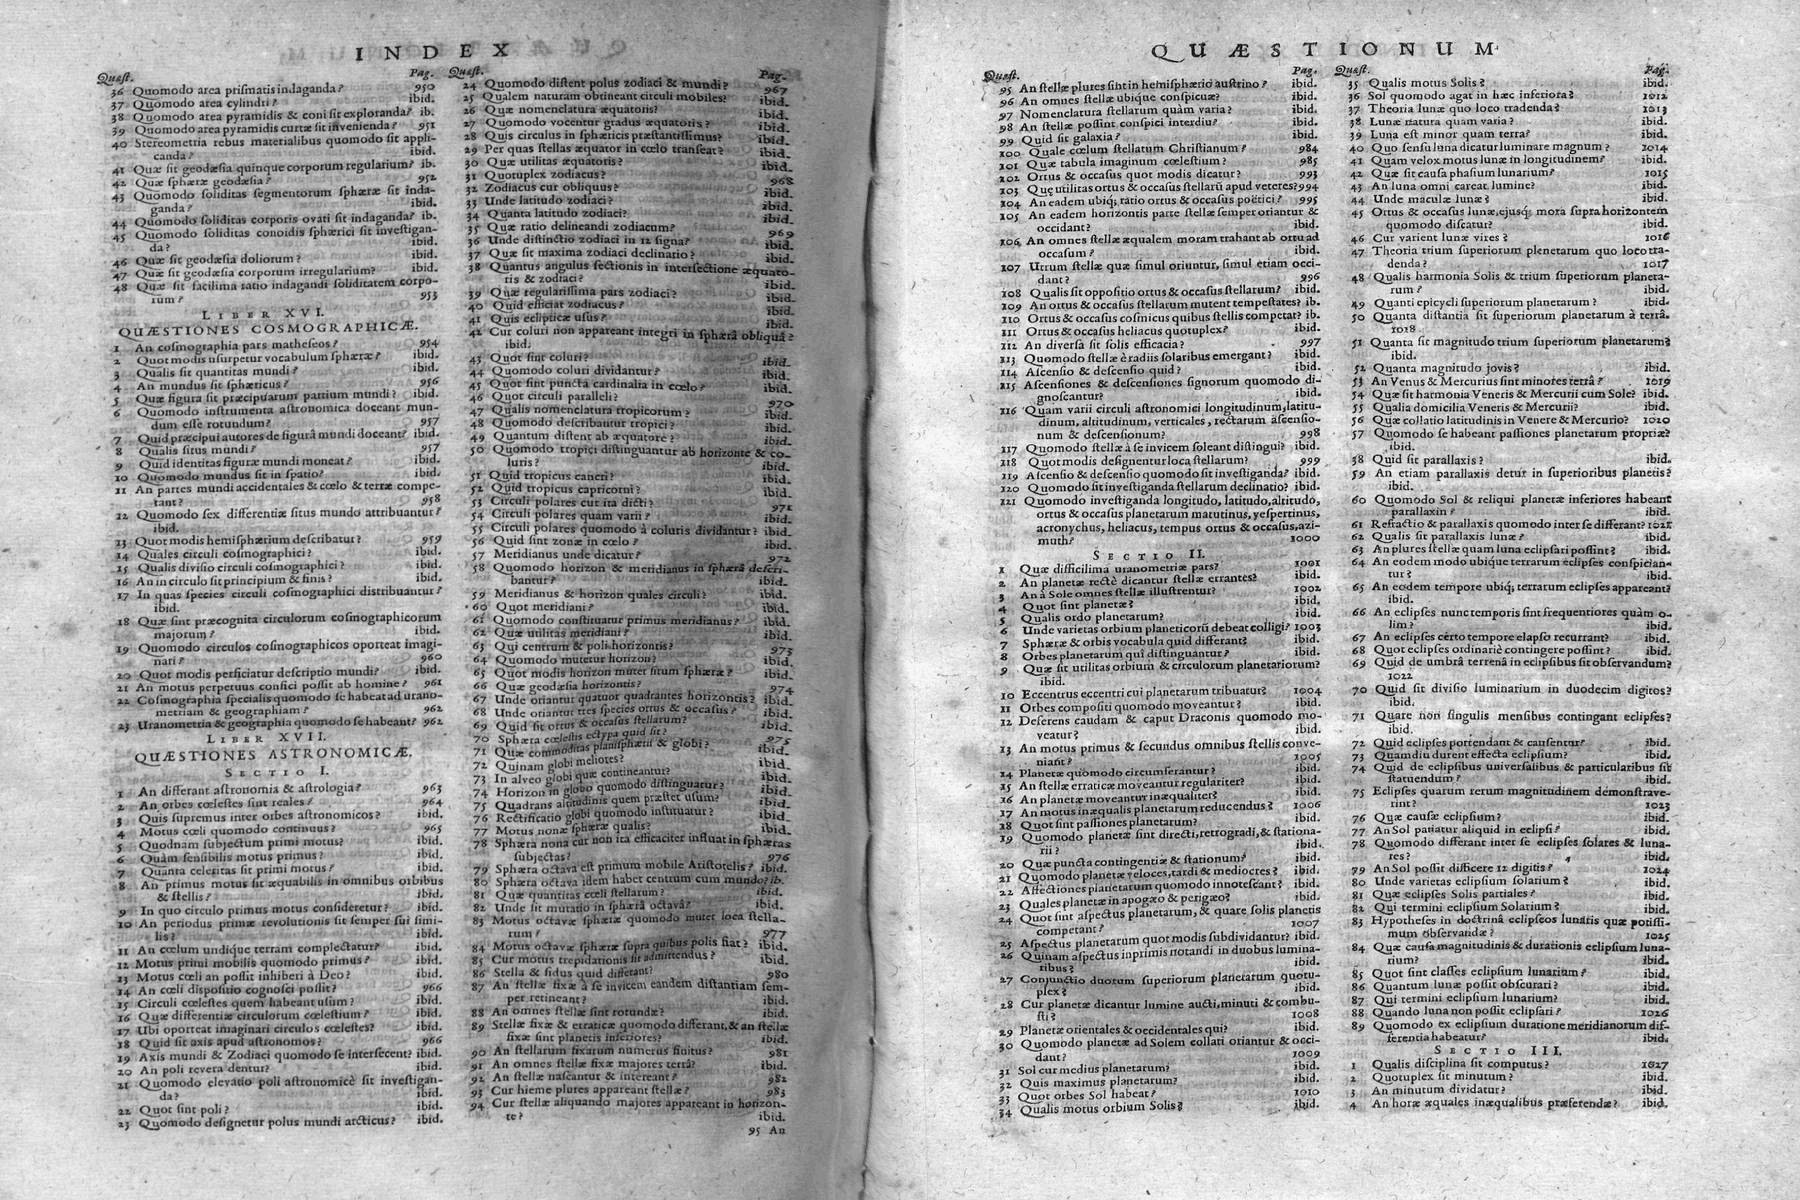 INDEX
Quæst. Pag.
36 Quomodo area prismatis indaganda? 950
37 Quomodo area cylindri? ibid.
38 Quomodo area pyramidis & coni sit exploranda? ib.
39 Quomodo area pyramidis curtæ sit invenienda? 951
40 Stereometria rebus materialibus quomodo sit appli-
canda? ibid.
41 Quæ sit geodæsia quinque corporum regularium? ib.
42 Quæ sphæræ geodæsia? 952
43 Quomodo soliditas segmentorum sphæræ sit inda-
ganda? ibid.
44 Quomodo soliditas corporis ovati sit indaganda? ib.
45 Quomodo soliditas conoidis sphærici sit investigan-
da? ibid.
46 Quæ sit geodæsia doliorum? ibid.
47 Quæ sit geodæsia corporum irregularium? ibid.
48 Quæ sit facilima ratio indagandi soliditatem corpo-
rum? 953
LIBER XVI.
QUÆSTIONES COSMOGRAPHICÆ.
1 An cosmographia pars matheseos? 954
2 Quot modis usurpetur vocabulum sphæræ? ibid.
3 Qualis sit quantitas mundi? ibid.
4 An mundus sit sphæricus? 956
5 Quæ figura sit præcipuarum partium mundi? ibid.
6 Quomodo instrumenta astronomica doceant mun-
dum esse rotundum? 957
7 Quid præcipui autores de figurâ mundi doceant? ibid.
8 Qualis situs mundi? 957
9 Quid identitas figuræ mundi moneat? ibid.
10 Quomodo mundus sit in spatio? ibid.
11 An partes mundi accidentales & cœlo & terræ compe-
tant? 958
12 Quomodo sex differentiæ situs mundo attribuantur?
ibid.
13 Quot modis hemisphærium describatur? 959
14 Quales circuli cosmographici? ibid.
15 Qualis divisio circuli cosmographici? ibid.
16 An in circulo sit principium & finis? ibid.
17 In quas species circuli cosmographici distribuantur?
ibid.
18 Quæ sint præcognita circulorum cosmographicorum
majorum? ibid.
19 Quomodo circulos cosmographicos oporteat imagi-
nari? 960
20 Quot modis perficiatur descriptio mundi? ibid.
21 An motus perpetuus confici possit ab homine? 961
22 Cosmographia specialis quomodo se habeat ad urano-
metriam & geographiam? 962
23 Uranometria & geographia quomodo se habeant? 962
LIBER XVII.
QUÆSTIONES ASTRONOMICÆ.
SECTIO I.
1 An differant astronomia & astrologia? 963
2 An orbes cœlestes sint reales? 964
3 Quis supremus inter orbes astronomicos? ibid.
4 Motus cœli quomodo continuus? 965
5 Quodnam subjectum primi motus? ibid.
6 Quàm sensibilis motus primus? ibid.
7 Quanta celeritas sit primi motus? ibid.
8 An primus motus sit æquabilis in omnibus orbibus
& stellis? ibid.
9 In quo circulo primus motus consideretur? ibid.
10 An periodus primæ revolutionis sit semper sui simi-
lis? ibid.
11 An cœlum undique terram complectatur? ibid.
12 Motus primi mobilis quomodo primus? ibid.
13 Motus cœli an possit inhiberi à Deo? ibid.
14 An cœli dispositio cognosci possit? 966
15 Circuli cœlestes quem habeant usum? ibid.
16 Quæ differentiæ circulorum cœlestium? ibid.
17 Ubi oporteat imaginari circulos cœlestes? ibid.
18 Quid sit axis apud astronomos? 966
19 Axis mundi & Zodiaci quomodo se intersecent? ibid.
20 An poli revera dentur? ibid.
21 Quomodo elevatio poli astronomicè sit investigan-
da? ibid.
22 Quot sint poli? ibid.
23 Quomodo designetur polus mundi arcticus? ibid.
Quæst. Pag.
24 Quomodo distent polus zodiaci & mundi? 967
25 Qualem naturam obtineant circuli mobiles? ibid.
26 Quæ nomenclatura æquatoris? ibid.
27 Quomodo vocentur gradus æquatoris? ibid.
28 Quis circulus in sphæricis præstantissimus? ibid.
29 Per quas stellas æquator in cœlo transeat? ibid.
30 Quæ utilitas æquatoris? ibid.
31 Quotuplex zodiacus? ibid.
32 Zodiacus cur obliquus? 968
33 Unde latitudo zodiaci? ibid.
34 Quanta latitudo zodiaci? ibid.
35 Quæ ratio delineandi zodiacum? ibid.
36 Unde distinctio zodiaci in 12 signa? 969
37 Quæ sit maxima zodiaci declinatio? ibid.
38 Quantus angulus sectionis in intersectione æquato-
ris & zodiaci? ibid.
39 Quæ regularissima pars zodiaci? ibid.
40 Quid efficiat zodiacus? ibid.
41 Quis eclipticæ usus? ibid.
42 Cur coluri non appareant integri in sphærâ obliquâ?
ibid.
43 Quot sint coluri? ibid.
44 Quomodo coluri dividantur? ibid.
45 Quot sint puncta cardinalia in cœlo? ibid.
46 Quot circuli paralleli? ibid.
47 Qualis nomenclatura tropicorum? 970
48 Quomodo describantur tropici? ibid.
49 Quantum distent ab æquatore? ibid.
50 Quomodo tropici distinguantur ab horizonte & co-
luris? ibid.
51 Quid tropicus cancri? ibid.
52 Quid tropicus capricorni? ibid.
53 Circuli polares cur ita dicti? 971
54 Circuli polares quam varii? ibid.
55 Circuli polares quomodo à coluris dividantur? ibid.
56 Quid sint zonæ in cœlo? ibid.
57 Meridianus unde dicatur? 972
58 Quomodo horizon & meridianus in sphærâ descri-
bantur? ibid.
59 Meridianus & horizon quales circuli? ibid.
60 Quot meridiani? ibid.
61 Quomodo constituatur primus meridianus? ibid.
62 Quæ utilitas meridiani? ibid.
63 Qui centrum & poli horizontis? 973
64 Quomodo mutetur horizon? ibid.
65 Quot modis horizon mutet situm sphæræ? ibid.
66 Quæ geodæsia horizontis? 974
67 Unde oriantur quatuor quadrantes horizontis? ibid.
68 Unde oriantur tres species ortus & occasus? ibid.
69 Quid sit ortus & occasus stellarum? ibid.
70 Sphæra cœlestis ectypa quid sit? 975
71 Quæ commoditas planisphærii & globi? ibid.
72 Quinam globi meliores? ibid.
73 In alveo globi quæ contineantur? ibid.
74 Horizon in globo quomodo distinguatur? ibid.
75 Quadrans altitudinis quem præstet usum? ibid.
76 Rectificatio globi quomodo instituatur? ibid.
77 Motus nonæ sphæræ qualis? ibid.
78 Sphæra nona cur non ita efficaciter influat in sphæras
subjectas? 976
79 Sphæra octava est primum mobile Aristotelis? ibid.
80 Sphæra octava idem habet centrum cum mundo? ib.
81 Quæ quantitas cœli stellarum? ibid.
82 Unde sit mutatio in sphærâ octavâ? ibid.
83 Motus octavæ sphæræ quomodo mutet loca stella-
rum? 977
84 Motus octavæ sphæræ supra quibus polis fiat? ibid.
85 Cur motus trepidationis sit admittendus? ibid.
86 Stella & sidus quid differant? 980
87 An stellæ fixæ à se invicem eandem distantiam sem-
per retineant? ibid.
88 An omnes stellæ sint rotundæ? ibid.
89 Stellæ fixæ & erraticæ quomodo differant, & an stellæ
fixæ sint planetis inferiores? ibid.
90 An stellarum fixarum numerus finitus? 981
91 An omnes stellæ fixæ majores terrâ? ibid.
92 An stellæ nascantur & intereant? 982
93 Cur hieme plures appareant stellæ? 983
94 Cur stellæ aliquando majores appareant in horizon-
te? ibid.
95 An
QUÆSTIONUM
Quæst. Pag.
95 An stellæ plures sint in hemisphærio austrino? ibid.
96 An omnes stellæ ubique conspicuæ? ibid.
97 Nomenclatura stellarum quàm varia? ibid.
98 An stellæ possint conspici interdiu? ibid.
99 Quid sit galaxia? ibid.
100 Quale cœlum stellatum Christianum? 984
101 Quæ tabula imaginum cœlestium? 985
102 Ortus & occasus quot modis dicatur? 993
103 Quę utilitas ortus & occasus stellarū apud veteres? 994
104 An eadem ubiq; ratio ortus & occasus poëtici? 995
105 An eadem horizontis parte stellæ semper oriantur &
occidant? ibid.
106 An omnes stellæ æqualem moram trahant ab ortu ad
occasum? ibid.
107 Utrum stellæ quæ simul oriuntur, simul etiam occi-
dant? 996
108 Qualis sit oppositio ortus & occasus stellarum? ibid.
109 An ortus & occasus stellarum mutent tempestates? ib.
110 Ortus & occasus cosmicus quibus stellis competat? ib.
111 Ortus & occasus heliacus quotuplex? ibid.
112 An diversa sit solis efficacia? 997
113 Quomodo stellæ è radiis solaribus emergant? ibid.
114 Ascensio & descensio quid? ibid.
115 Ascensiones & descensiones signorum quomodo di-
gnoscantur? ibid.
116 Quam varii circuli astronomici longitudinum, latitu-
dinum, altitudinum, verticales, rectarum ascensio-
num & descensionum? 998
117 Quomodo stellæ à se invicem soleant distingui? ibid.
118 Quot modis designentur loca stellarum? 999
119 Ascensio & descensio quomodo sit investiganda? ibid.
120 Quomodo sit investiganda stellarum declinatio? ibid.
121 Quomodo investiganda longitudo, latitudo, altitudo,
ortus & occasus planetarum matutinus, vespertinus,
acronychus, heliacus, tempus ortus & occasus, azi-
muth? 1000
SECTIO II.
1 Quæ difficilima uranometriæ pars? 1001
2 An planetæ rectè dicantur stellæ errantes? ibid.
3 An à Sole omnes stellæ illustrentur? 1002
4 Quot sint planetæ? ibid.
5 Qualis ordo planetarum? ibid.
6 Unde varietas orbium planeticorū debeat colligi? 1003
7 Sphæræ & orbis vocabula quid differant? ibid.
8 Orbes planetarum quî distinguantur? ibid.
9 Quæ sit utilitas orbium & circulorum planetariorum?
ibid.
10 Eccentrus eccentri cui planetarum tribuatur? 1004
11 Orbes compositi quomodo moveantur? ibid.
12 Deferens caudam & caput Draconis quomodo mo-
veatur? ibid.
13 An motus primus & secundus omnibus stellis conve-
niant? 1005
14 Planetæ quomodo circumferantur? ibid.
15 An stellæ erraticæ moveantur regulariter? ibid.
16 An planetæ moveantur inæqualiter? ibid.
17 An motus inæqualis planetarum reducendus? 1006
18 Quot sint passiones planetarum? ibid.
19 Quomodo planetæ sint directi, retrogradi, & stationa-
rii? ibid.
20 Quæ puncta contingentiæ & stationum? ibid.
21 Quomodo planetæ veloces, tardi & mediocres? ibid.
22 Affectiones planetarum quomodo innotescant? ibid.
23 Quales planetæ in apogæo & perigæo? ibid.
24 Quot sint aspectus planetarum, & quare solis planetis
competant? 1007
25 Aspectus planetarum quot modis subdividantur? ibid.
26 Quinam aspectus inprimis notandi in duobus lumina-
ribus? ibid.
27 Conjunctio duorum superiorum planetarum quotu-
plex? ibid.
28 Cur planetæ dicantur lumine aucti, minuti & combu-
sti? 1008
29 Planetæ orientales & occidentales qui? ibid.
30 Quomodo planetæ ad Solem collati oriantur & occi-
dant? 1009
31 Sol cur medius planetarum? ibid.
32 Quis maximus planetarum? ibid.
33 Quot orbes Sol habeat? 1010
34 Qualis motus orbium Solis? ibid.
Quæst. Pag.
35 Qualis motus Solis? ibid.
36 Sol quomodo agat in hæc inferiora? 1012
37 Theoria lunæ quo loco tradenda? 1013
38 Lunæ natura quam varia? ibid.
39 Luna est minor quam terra? ibid.
40 Quo sensu luna dicatur luminare magnum? 1014
41 Quam velox motus lunæ in longitudinem? ibid.
42 Quæ sit causa phasium lunarium? 1015
43 An luna omni careat lumine? ibid.
44 Unde maculæ lunæ? ibid.
45 Ortus & occasus lunæ, ejusq; mora supra horizontem
quomodo discatur? ibid.
46 Cur varient lunæ vires? 1016
47 Theoria trium superiorum planetarum quo loco tra-
denda? 1017
48 Qualis harmonia Solis & trium superiorum planeta-
rum? ibid.
49 Quanti epicycli superiorum planetarum? ibid.
50 Quanta distantia sit superiorum planetarum à terrâ.
1018.
51 Quanta sit magnitudo trium superiorum planetarum?
ibid.
52 Quanta magnitudo jovis? ibid.
53 An Venus & Mercurius sint minores terrâ? 1019
54 Quæ sit harmonia Veneris & Mercurii cum Sole? ibid.
55 Qualia domicilia Veneris & Mercurii? ibid.
56 Quæ collatio latitudinis in Venere & Mercurio? 1020
57 Quomodo se habeant passiones planetarum propriæ?
ibid.
58 Quid sit parallaxis? ibid.
59 An etiam parallaxis detur in superioribus planetis?
ibid.
60 Quomodo Sol & reliqui planetæ inferiores habeant
parallaxin? ibid.
61 Refractio & parallaxis quomodo inter se differant? 1021
62 Qualis sit parallaxis lunæ? ibid.
63 An plures stellæ quam luna eclipsari possint? ibid.
64 An eodem modo ubique terrarum eclipses conspician-
tur? ibid.
65 An eodem tempore ubiq; terrarum eclipses appareant?
ibid.
66 An eclipses nunc temporis sint frequentiores quàm o-
lim? ibid.
67 An eclipses certo tempore elapso recurrant? ibid.
68 Quot eclipses ordinariè contingere possint? ibid.
69 Quid de umbrâ terrenâ in eclipsibus sit observandum?
1022
70 Quid sit divisio luminarium in duodecim digitos?
ibid.
71 Quare non singulis mensibus contingant eclipses?
ibid.
72 Quid eclipses portendant & causentur? ibid.
73 Quamdiu durent effecta eclipsium? ibid.
74 Quid de eclipsibus universalibus & particularibus sit
statuendum? ibid.
75 Eclipses quarum rerum magnitudinem demonstrave-
rint? 1023
76 Quæ causæ eclipsium? ibid.
77 An Sol patiatur aliquid in eclipsi? ibid.
78 Quomodo differant inter se eclipses solares & luna-
res? ibid.
79 An Sol possit deficere 12 digitis? 1024
80 Unde varietas eclipsium solarium? ibid.
81 Quæ eclipses Solis partiales? ibid.
82 Qui termini eclipsium Solarium? ibid.
83 Hypotheses in doctrinâ eclipseos lunaris quæ potissi-
mum observandæ? 1025
84 Quæ causa magnitudinis & durationis eclipsium luna-
rium? ibid.
85 Quot sint classes eclipsium lunarium? ibid.
86 Quantum lunæ possit obscurari? ibid.
87 Qui termini eclipsium lunarium? ibid.
88 Quando luna non possit eclipsari? 1026
89 Quomodo ex eclipsium duratione meridianorum dif-
ferentia habeatur? ibid.
SECTIO III.
1 Qualis disciplina sit computus? 1627
2 Quotuplex sit minutum? ibid.
3 An minutum dividatur? ibid.
4 An horæ æquales inæqualibus præferendæ? ibid.